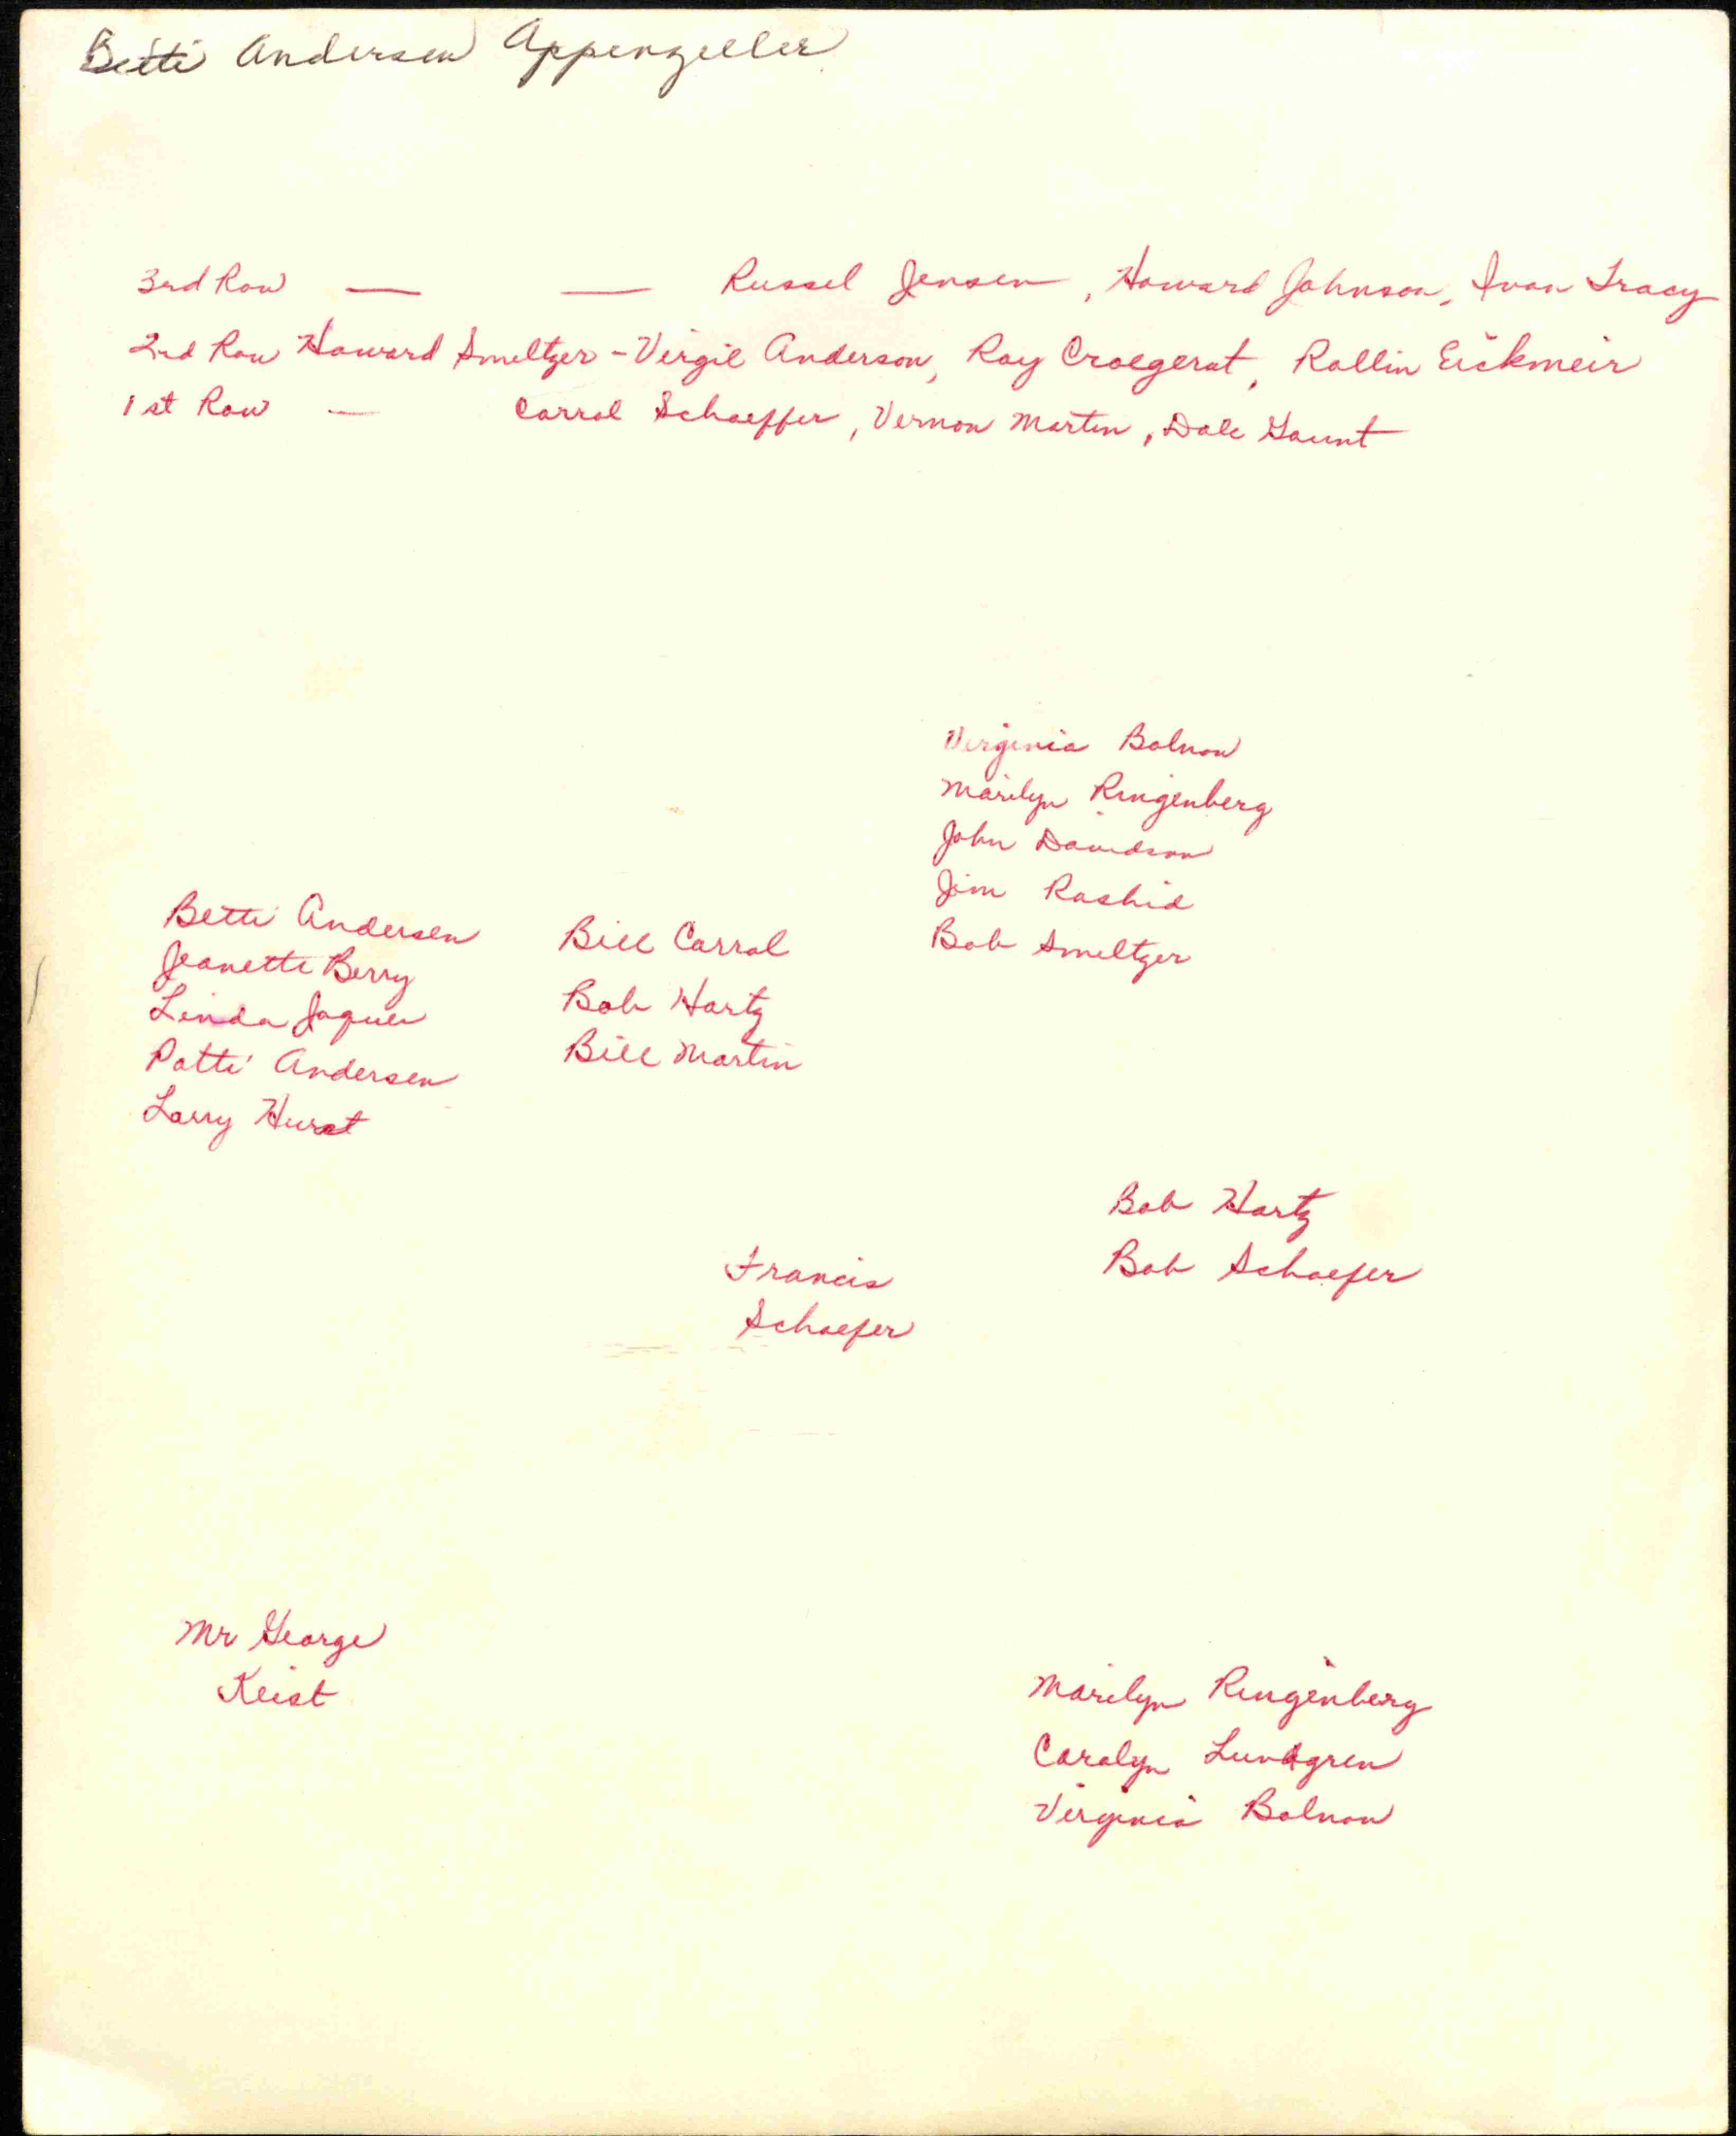 Betti Andersen Appenzeller
3rd Row — — Russel Jensen, Howard Johnson, Ivan Tracy
2nd Row Howard Smeltzer - Virgil Anderson, Ray Croegerat, Rollin Eickmeir
1st Row — Carrol Schaeffer, Vernon Martin, Dale Gaunt
Virginia Bolnow
Marilyn Ringenberg
John Davidson
Jim Rashid
Bob Smeltzer
Betti Andersen
Jeanette Berry
Linda Jaques
Patti Andersen
Larry Hurst
Bill Carrol
Bob Hartz
Bill Martin
Bob Hartz
Bob Schaefer
Francis
Schaefer
Mr George
Keist
Marilyn Ringenberg
Carolyn Lundgren
Virginia Bolnow